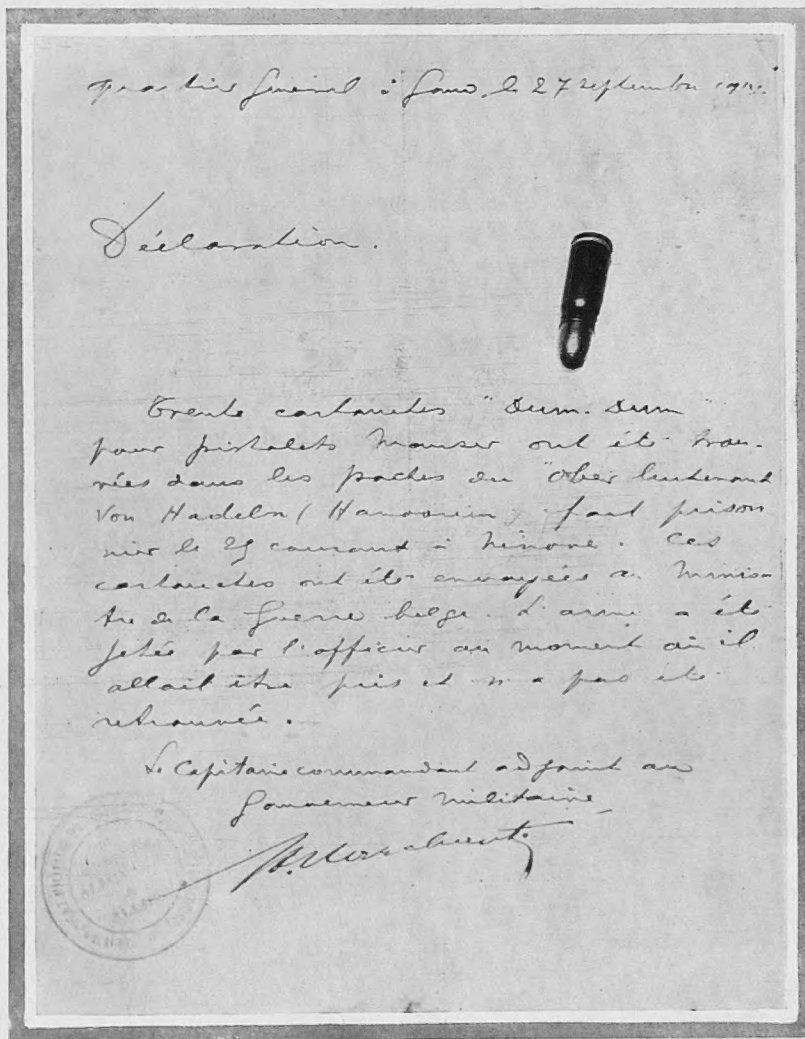 Quartier Général à Gand, le 27 septembre
Déclaration.
Trente cartouches "Dum-Dum"
pour pistolets Mauser ont été trou-
vées dans les poches du "Ober lieutenant
Von Hadeln (Hanovrien) fait prison
nier le 25 courant à Ninove. Ces
cartouches ont été envoyées au Minis-
tre de la Guerre belge. L'arme a été
jetée par l'officier au moment où il
allait être pris et n'a pas été
retrouvée.
Le Capitaine commandant adjoint au
Gouverneur militaire,